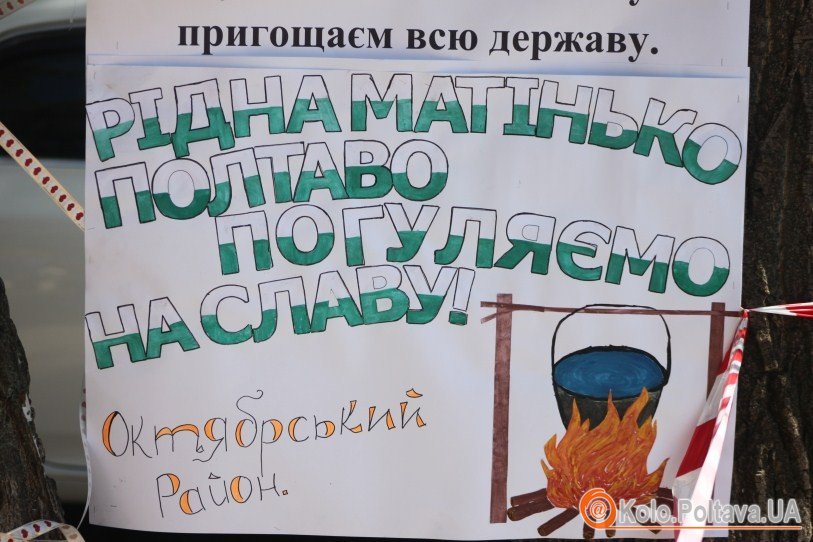 пригощаєм всю державу.
РІДНА МАТІНЬКО
ПОЛТАВО
ПОГУЛЯЄМО
НА СЛАВУ!
Октябрський
Район.
@Kolo.Poltava.UA